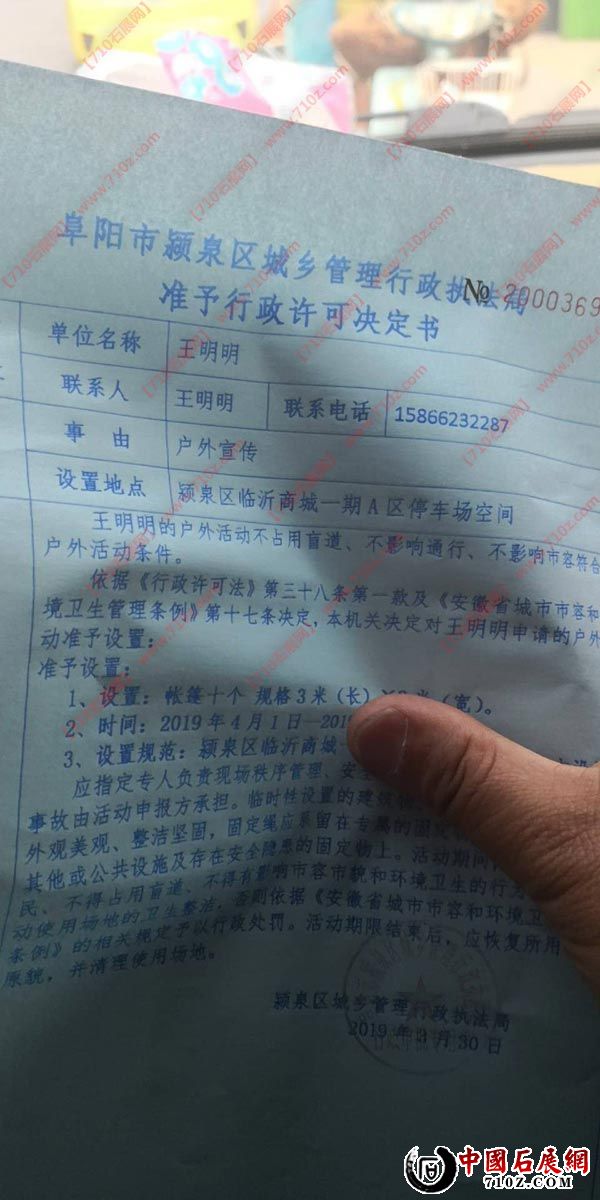 阜阳市颍泉区城乡管理行政执法局
№ 2000369
准予行政许可决定书
单位名称 王明明
联系人 王明明 联系电话 15866232287
事 由 户外宣传
设置地点 颍泉区临沂商城一期A区停车场空间
王明明的户外活动不占用盲道、不影响通行、不影响市容符合
户外活动条件。
依据《行政许可法》第三十八条第一款及《安徽省城市市容和
境卫生管理条例》第十七条决定,本机关决定对王明明申请的户外
动准予设置:
准予设置:
1、设置:帐篷十个 规格3米(长) 米(宽)。
2、时间:2019年4月1日—201
3、设置规范:颍泉区临沂商城一
应指定专人负责现场秩序管理、安全
事故由活动申报方承担。临时性设置的建筑物
外观美观、整洁坚固,固定绳应系留在专属的固定
其他或公共设施及存在安全隐患的固定物上。活动期间
民、不得占用盲道、不得有影响市容市貌和环境卫生的行为
动使用场地的卫生整洁,否则依据《安徽省城市市容和环境卫
条例》的相关规定予以行政处罚。活动期限结束后,应恢复所用
原貌,并清理使用场地。
颍泉区城乡管理行政执法局
2019年3月30日
【710石展网】www.710z.com
中國石展網
710Z.COM